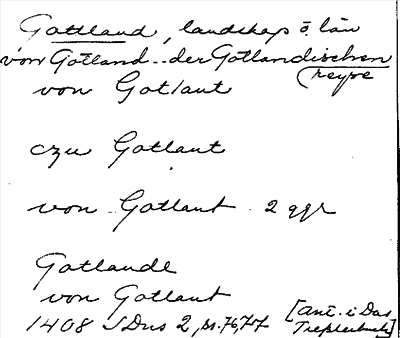 Gottland, landskap ö. län
von Gotland .. der Gotlandischen
reyse
von Gotlant
czu Gotlant
von .. Gotlant 2 ggr
Gotlande
von Gotlant
1408 SDns 2, s. 76, 77 [ant. i Das
Tresslerbuch]